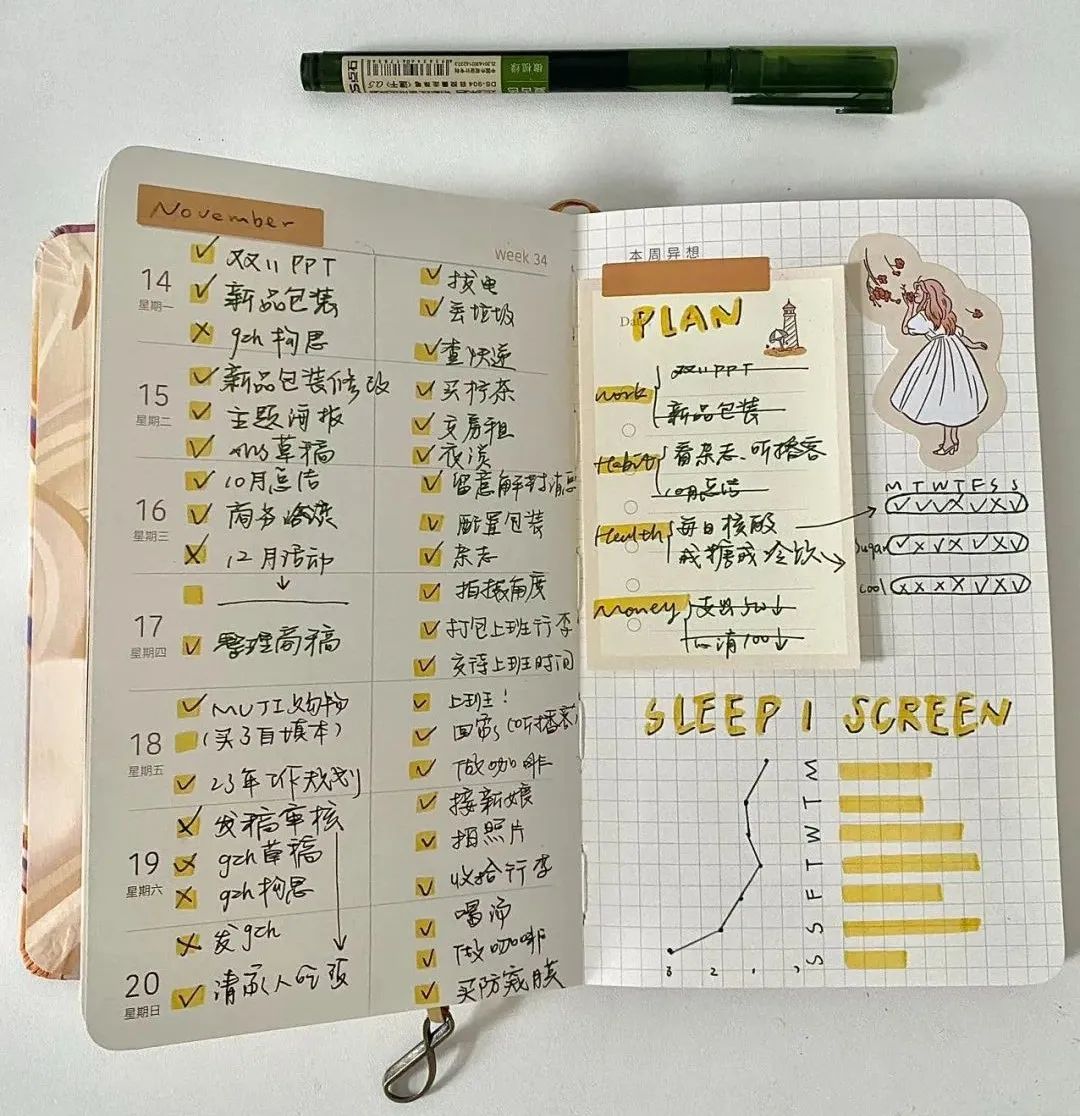 橄榄绿
DS-904
November
week 34
14
星期一
双11 PPT
新品包装
gzh 构思
15
星期二
新品包装修改
主题海报
xhs草稿
10月总结
16
星期三
商务
12月活动
17
星期四
整理商稿
MUJI购物
(买了自填本)
18
星期五
23年工作规划
发稿审核
19
星期六
gzh草稿
gzh构思
发gzh
20
星期日
清
拔电
丢垃圾
查快递
买柠茶
交房租
夜谈
留意解封消息
配置包装
杂志
拍摄角度
打包上班行李
交待上班时间
上班!
回家(听播客)
做咖啡
接新娘
拍照片
收拾行李
喝汤
做咖啡
买防窥膜
本周异想
Date
PLAN
work
双11PPT
新品包装
Habit
看杂志、听播客
10月总结
Health
每日核酸
戒糖戒冷饮
Money
支出500↓
100↓
M T W T F S S
sugar
cool
SLEEP | SCREEN
M
T
W
T
F
S
S
3 2 1